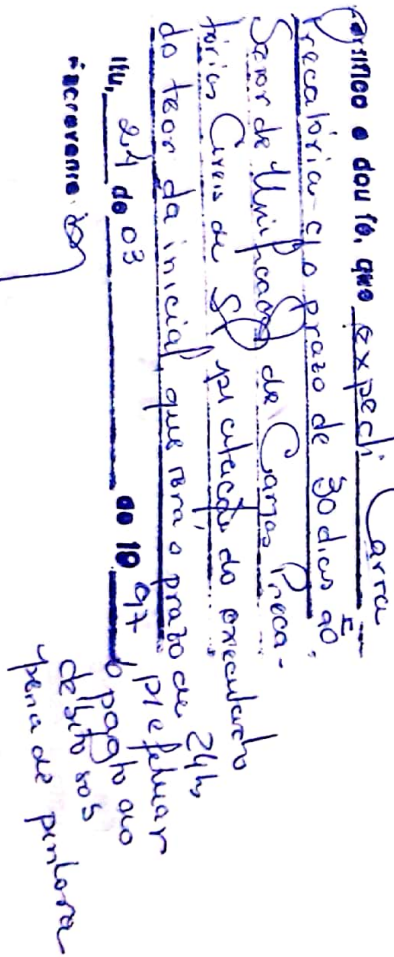 Certifico e dou fé, que expedi Carta
Precatória c/ o prazo de 30 dias ao
Setor de Unificado de Cartas Preca-
tórias Cíveis de SP p/ citação do executado
do teor da inicial, que terá o prazo de 24h,
p/ efetuar
o pagto do
débito sob
pena de penhora
Itu, 24 de 03 de 19 97
Escrevente